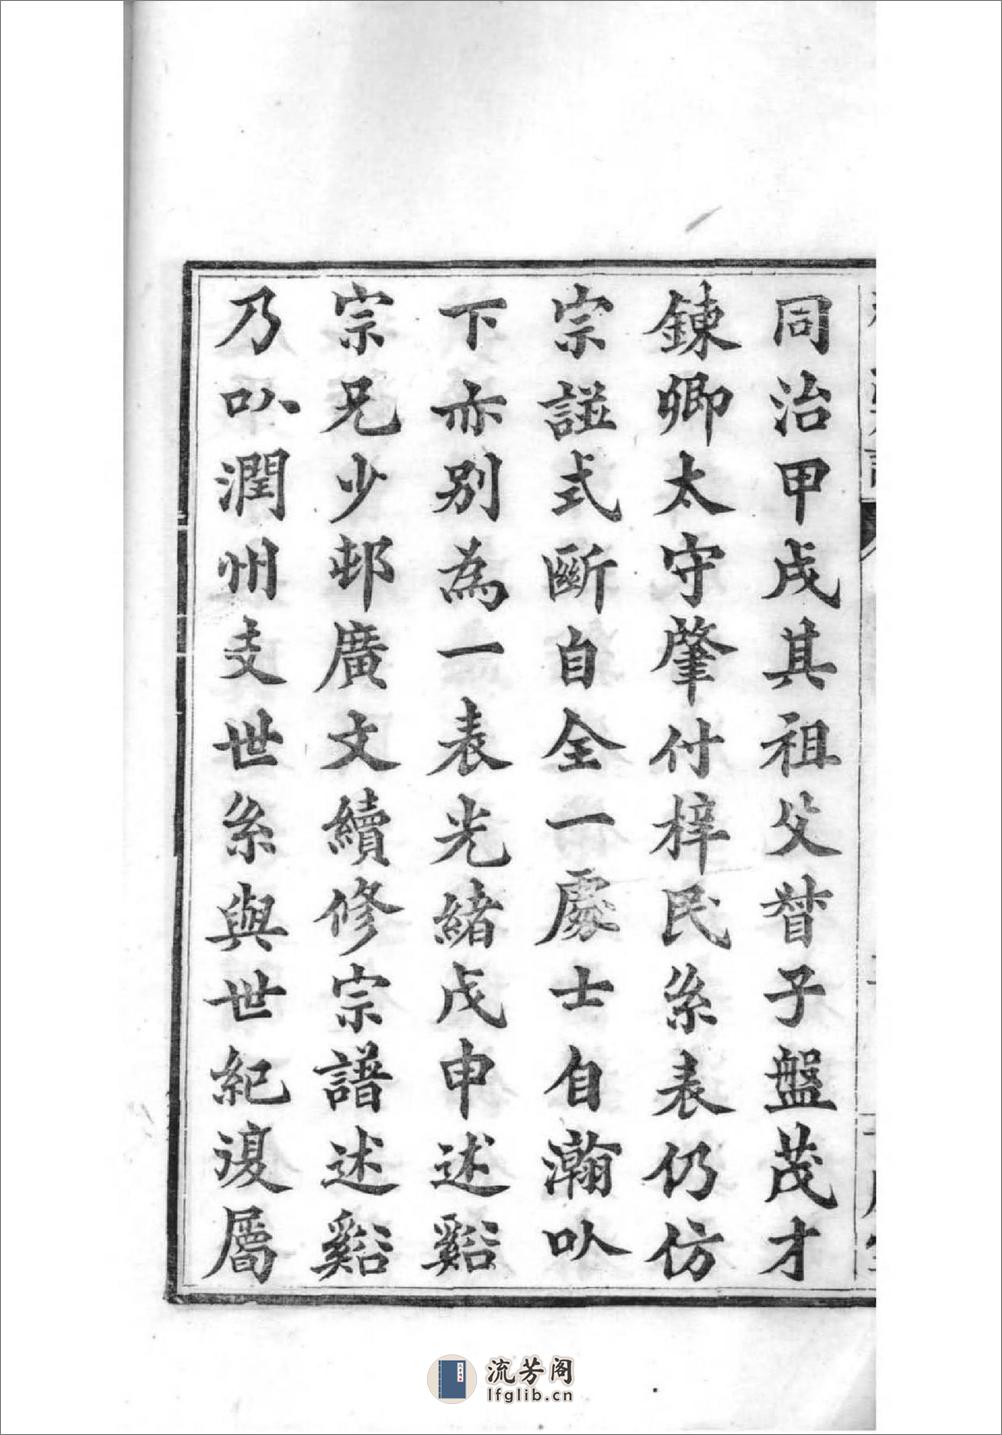 同治甲戌其祖父子盤茂才
鍊卿太守肇付梓民系表仍仿
宗諩式斷自全一處士自瀚㕥
下亦别為一表光緒戊申述谿
宗兄少邨廣文續修宗譜述谿
乃㕥潤州支世系與世紀復屬
流芳阁
lfglib.cn